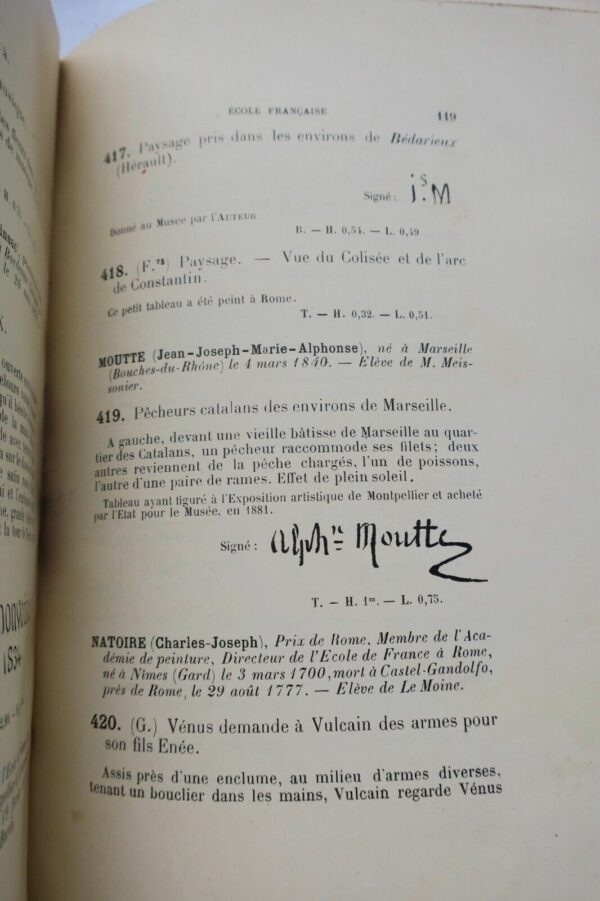 ÉCOLE FRANÇAISE 119
417. Paysage pris dans les environs de Bédarieux
(Hérault).
Signé : j.s.M
Donné au Musée par l'AUTEUR
B. — H. 0,54. — L. 0,49
418. (F.xs) Paysage. — Vue du Colisée et de l'arc
de Constantin.
Ce petit tableau a été peint à Rome.
T. — H. 0,32. — L. 0,51.
MOUTTE (Jean-Joseph-Marie-Alphonse), né à Marseille
(Bouches-du-Rhône) le 4 mars 1840. — Elève de M. Meis-
sonier.
419. Pêcheurs catalans des environs de Marseille.
A gauche, devant une vieille bâtisse de Marseille au quar-
tier des Catalans, un pêcheur raccommode ses filets; deux
autres reviennent de la pêche chargés, l'un de poissons,
l'autre d'une paire de rames. Effet de plein soleil.
Tableau ayant figuré à l'Exposition artistique de Montpellier et acheté
par l'Etat pour le Musée, en 1881.
Signé : Alphse Moutte
T. — H. 1m. — L. 0,75.
NATOIRE (Charles-Joseph), Prix de Rome, Membre de l'Aca-
démie de peinture, Directeur de l'Ecole de France à Rome,
né à Nîmes (Gard) le 3 mars 1700, mort à Castel-Gandolfo,
près de Rome, le 29 août 1777. — Elève de Le Moine.
420. (G.) Vénus demande à Vulcain des armes pour
son fils Enée.
Assis près d'une enclume, au milieu d'armes diverses,
tenant un bouclier dans les mains, Vulcain regarde Vénus